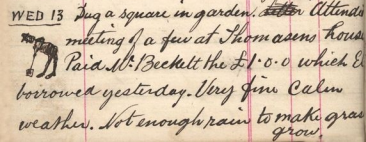 WED 13 Dug a square in garden. Attende
meeting of a few at Thomasens house
Paid Mr. Beckett the £1.0.0 which E
borrowed yesterday. Very fine Calm
weather. Not enough rain to make gras
grow.